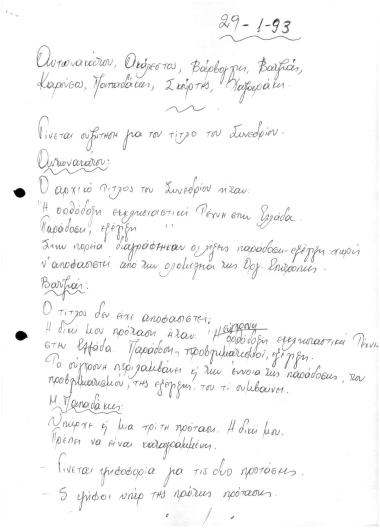 29-1-93
Οικονομάτου, Βάρβογλης, Βατζιάς,
Καρύσα, Παπαδάκης, Σκύρτης, Λαζαράκης.
Γίνεται συζήτηση για τον τίτλο του Συνεδρίου.
Ο αρχικός τίτλος του Συνεδρίου ήταν:
"Η ορθόδοξη εκκλησιαστική Τέχνη στην Ελλάδα
Παράδοση, εξέλιξη"
Στην πορεία διαγράφτηκαν οι λέξεις παράδοση-εξέλιξη χωρίς
ν' αποφασιστεί από την ολομέλεια της Οργ. Επιτροπής.
Βατζιάς:
Ο τίτλος δεν είχε αποφασιστεί,
Η δική μου πρόταση ήταν: "Η σύγχρονη ορθόδοξη εκκλησιαστική Τέχνη
στην Ελλάδα Παράδοση, προβληματισμοί, εξέλιξη.
Το σύγχρονη περιλαμβάνει και την έννοια της παράδοσης, του
προβληματισμού, της εξέλιξης του τι συμβαίνει.
Μ. Παπαδάκης:
Υπήρχε και μια τρίτη πρόταση. Η δική μου.
Πρέπει να είναι καταγραμμένη.
- Γίνεται ψηφοφορία για τις δύο προτάσεις.
- 5 ψήφοι υπέρ της πρώτης πρότασης.